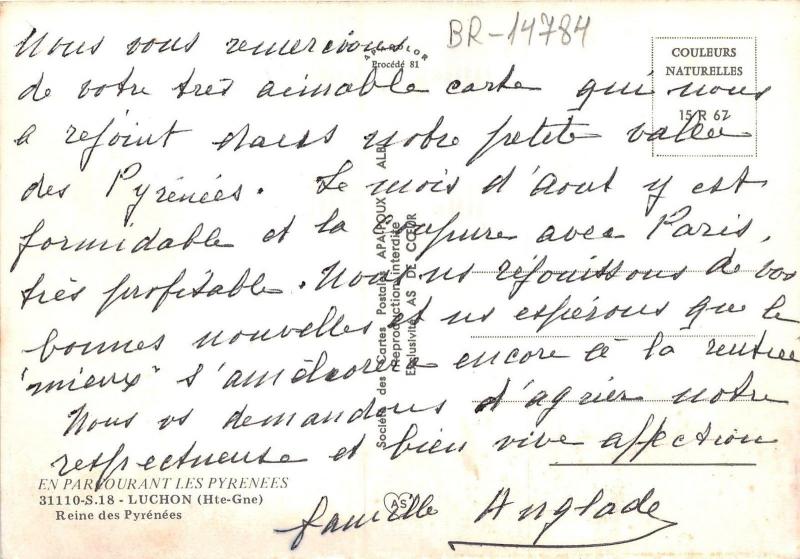 BR-14784
APA-COLOR
Procédé 81
COULEURS
NATURELLES
15 R 67
Nous vous remercions
de votre très aimable carte qui nous
a rejoint dans notre petite vallée
des Pyrénées. Le mois d'Aout y est
formidable et la coupure avec Paris,
très profitable. Nous ns réjouissons de vos
bonnes nouvelles et ns espérons que le
"mieux" s'améliorera encore à la rentrée
Nous vs demandons d'agréer notre
respectueuse et bien vive affection
famille Anglade
Société des Cartes Postales APA-POUX ALBI
Reproduction interdite
Exclusivité AS DE CŒUR
EN PARCOURANT LES PYRENEES
31110-S.18 - LUCHON (Hte-Gne)
Reine des Pyrénées
AS